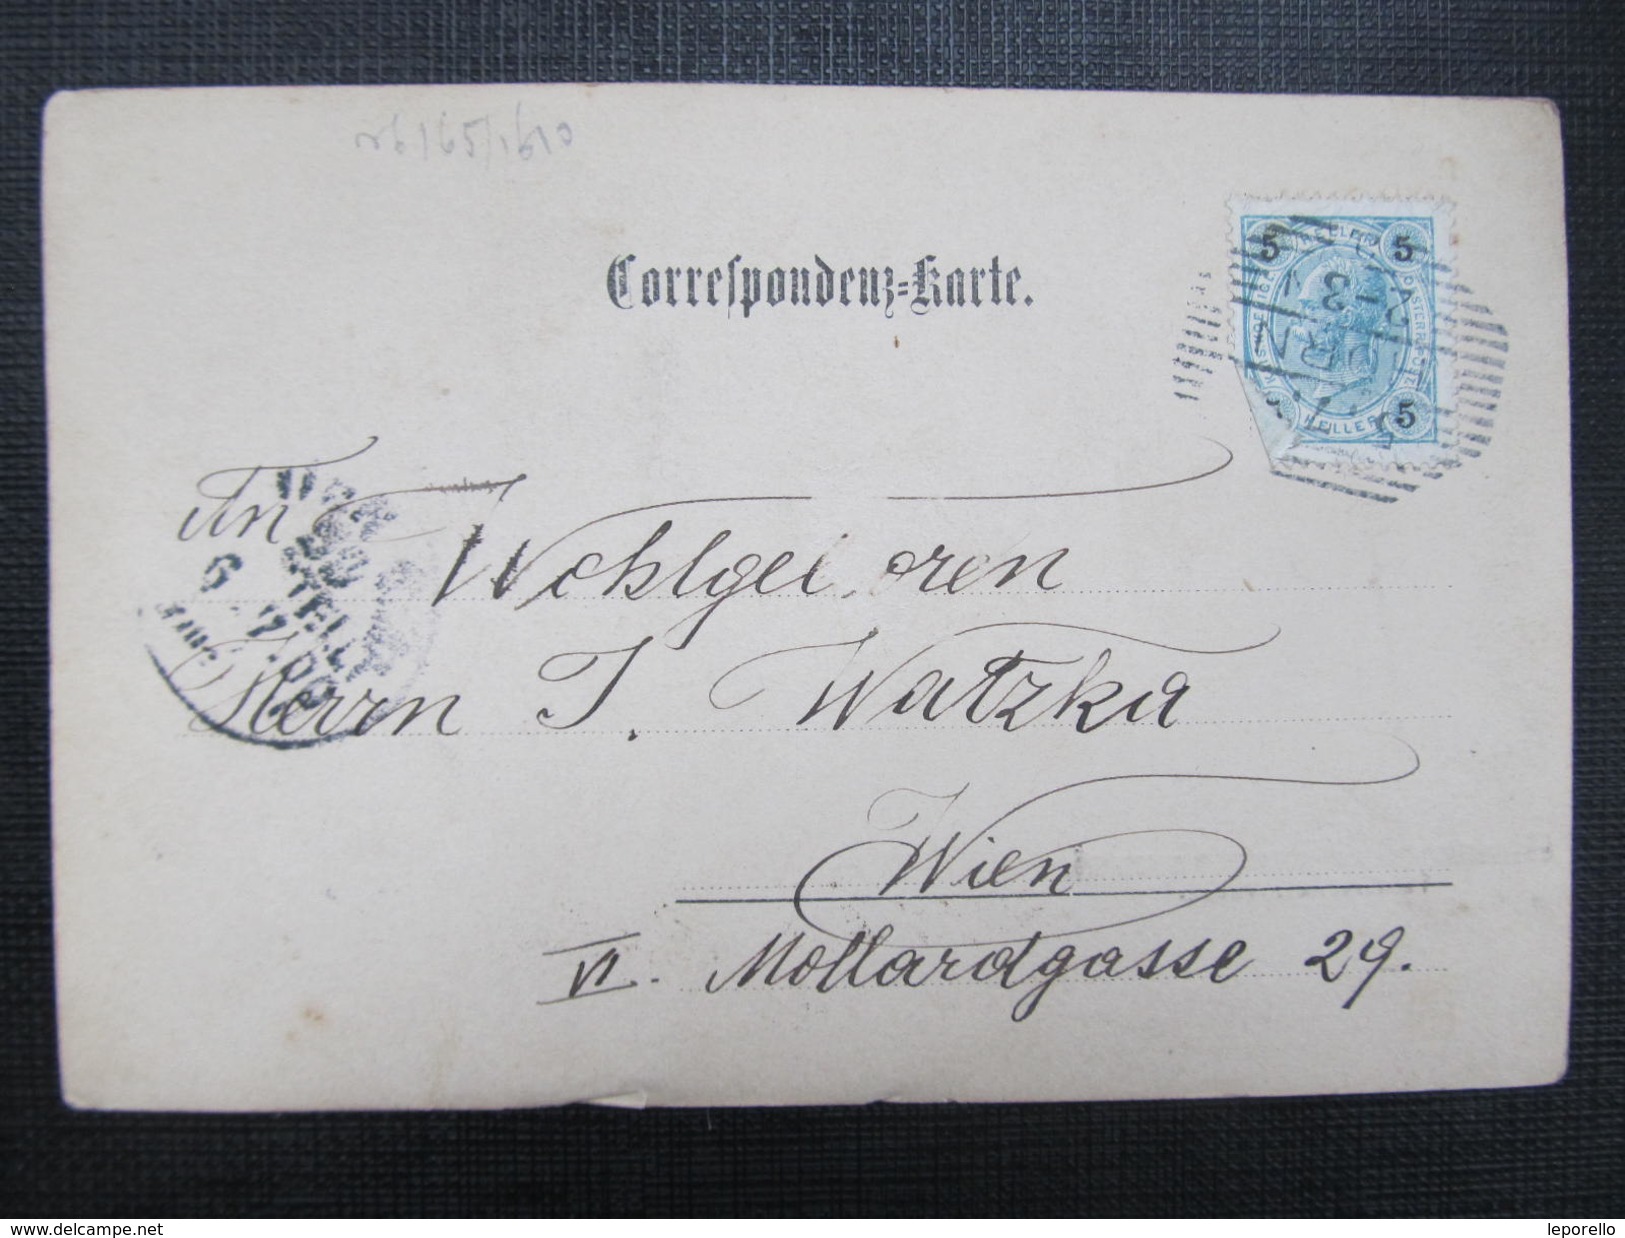 Correspondenz-Karte.
5 HELLER 5
HELLER 5
An
Wohlgeborenen
Herrn J. Watzka
Wien
VI. Mollardgasse 29.
www.delcampe.net
leporello